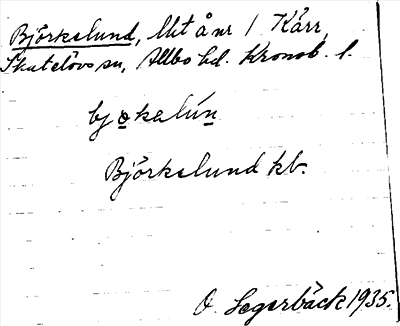 Björkelund, lht å nr 1 Kårr,
Skatelövs sn, Allbo hd. Kronob. l.
bjørkelún
Björkelund kb.
O. Segerbäck 1935.